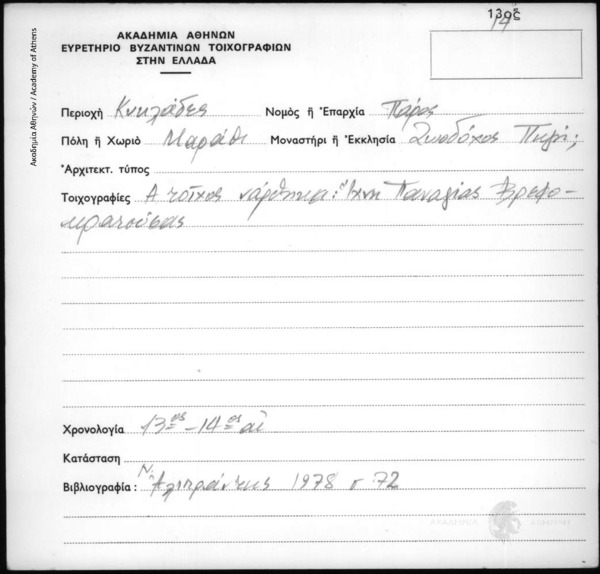 13ος
14
ΑΚΑΔΗΜΙΑ ΑΘΗΝΩΝ
ΕΥΡΕΤΗΡΙΟ ΒΥΖΑΝΤΙΝΩΝ ΤΟΙΧΟΓΡΑΦΙΩΝ
ΣΤΗΝ ΕΛΛΑΔΑ
Ακαδημία Αθηνών / Academy of Athens
Περιοχή Κυκλάδες Νομὸς ἢ Ἐπαρχία Πάρος
Πόλη ἢ Χωριὸ Μαράθι Μοναστήρι ἢ Ἐκκλησία Ζωοδόχος Πηγή;
Ἀρχιτεκτ. τύπος
Τοιχογραφίες Α τοῖχος νάρθηκα: ἴχνη Παναγίας Βρεφο-
κρατούσας
Χρονολογία 13ος – 14ος αἰ
Κατάσταση
Βιβλιογραφία : Ν. Ἀλιπράντης 1978 σ 72
ΑΚΑΔΗΜΙΑ ΑΘΗΝΩΝ